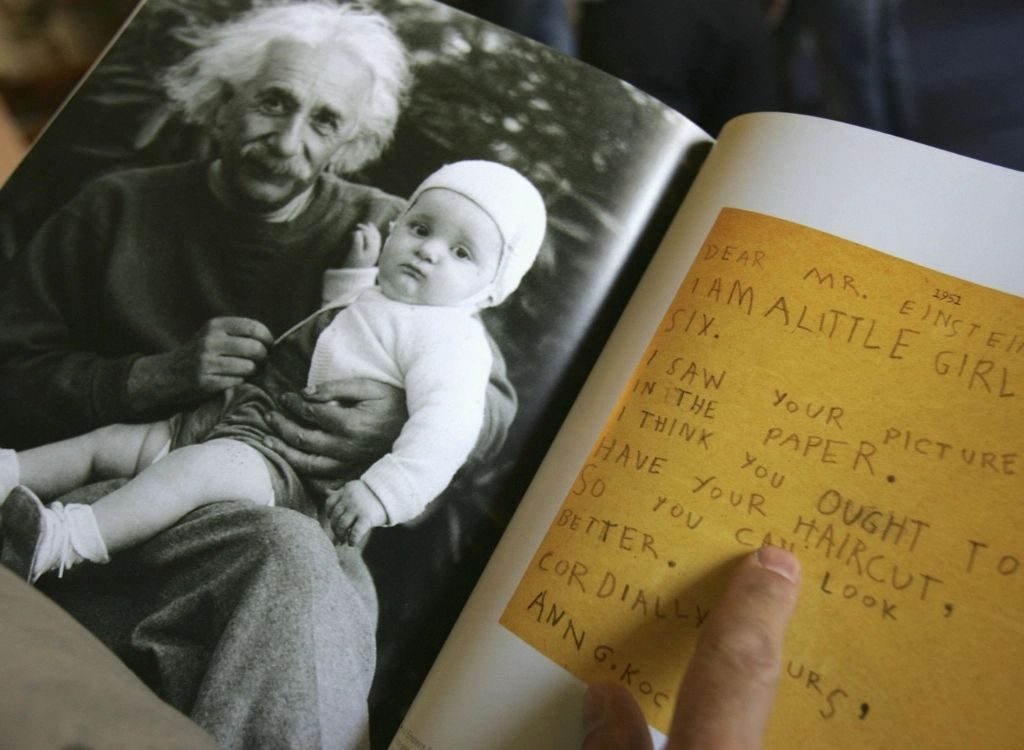 1951
DEAR MR. EINSTEIN
I AM A LITTLE GIRL
SIX.
I SAW YOUR PICTURE
IN THE PAPER.
I THINK YOU OUGHT TO
HAVE YOUR HAIRCUT,
SO YOU CAN LOOK
BETTER.
CORDIALLY URS,
ANN G. KOC